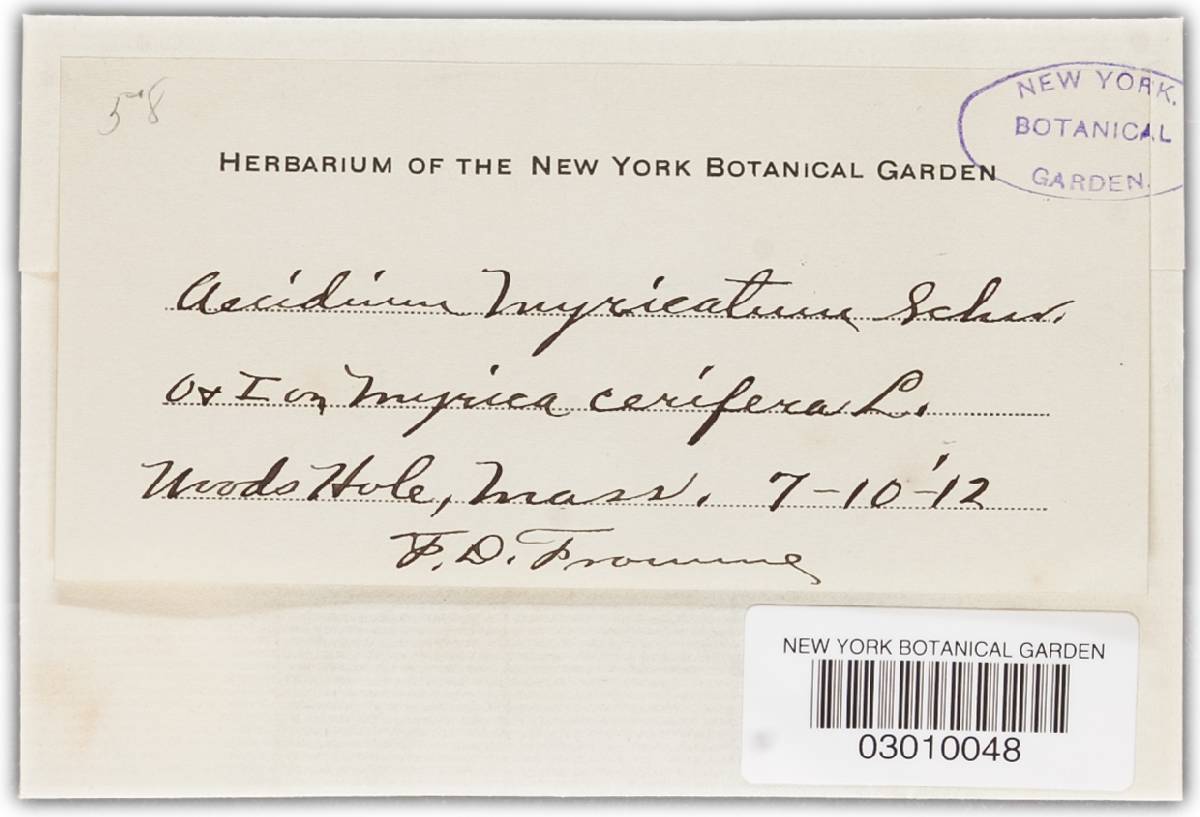 58
NEW YORK
BOTANICAL
GARDEN.
HERBARIUM OF THE NEW YORK BOTANICAL GARDEN
Aecidium Myricatum Schw.
O & I on Myrica cerifera L.
Woods Hole, Mass. 7-10-'12
F. D. Fromme
NEW YORK BOTANICAL GARDEN
03010048